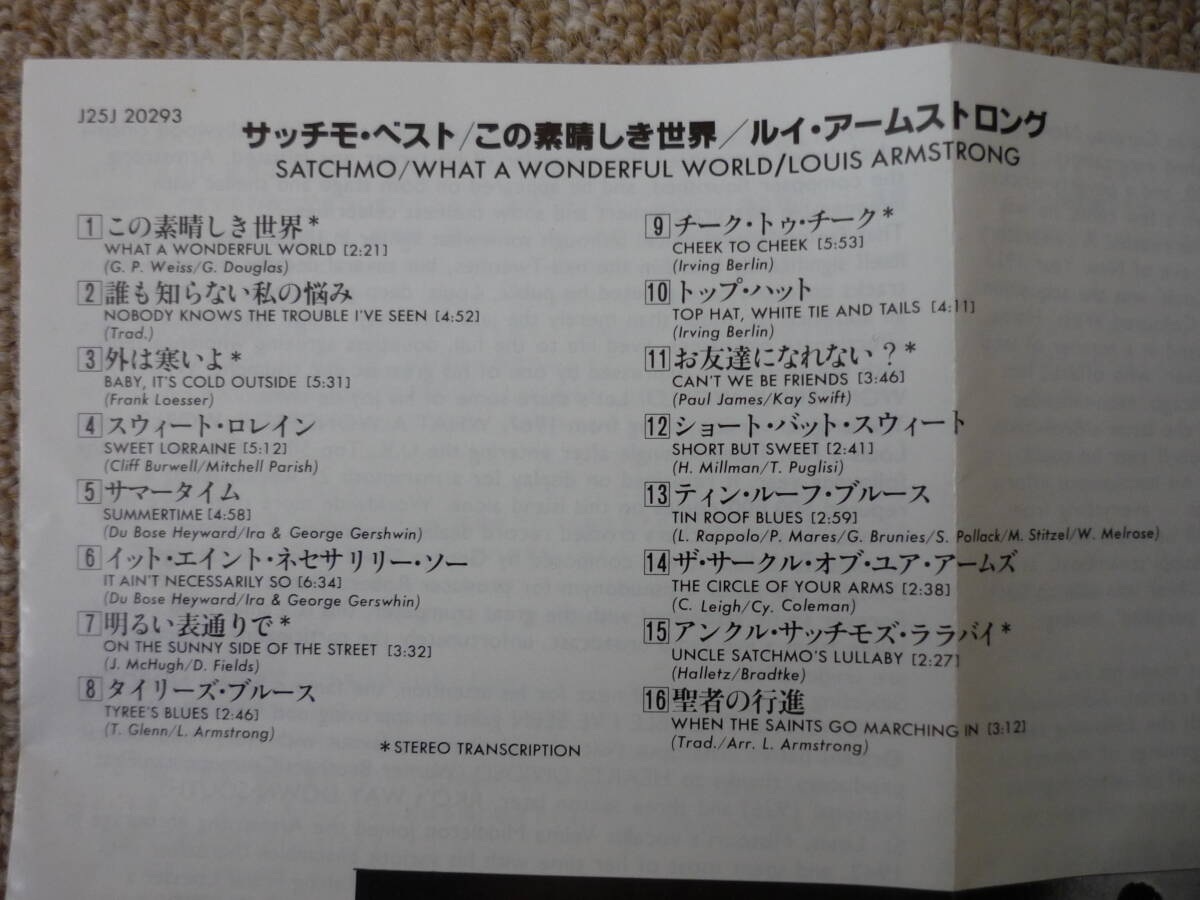 J25J 20293
サッチモ・ベスト/この素晴しき世界/ルイ・アームストロング
SATCHMO/WHAT A WONDERFUL WORLD/LOUIS ARMSTRONG
1 この素晴しき世界*
WHAT A WONDERFUL WORLD [2:21]
(G. P. Weiss/G. Douglas)
2 誰も知らない私の悩み
NOBODY KNOWS THE TROUBLE I'VE SEEN [4:52]
(Trad.)
3 外は寒いよ*
BABY, IT'S COLD OUTSIDE [5:31]
(Frank Loesser)
4 スウィート・ロレイン
SWEET LORRAINE [5:12]
(Cliff Burwell/Mitchell Parish)
5 サマータイム
SUMMERTIME [4:58]
(Du Bose Heyward/Ira & George Gershwin)
6 イット・エイント・ネセサリリー・ソー
IT AIN'T NECESSARILY SO [6:34]
(Du Bose Heyward/Ira & George Gerswhin)
7 明るい表通りで*
ON THE SUNNY SIDE OF THE STREET [3:32]
(J. McHugh/D. Fields)
8 タイリーズ・ブルース
TYREE'S BLUES [2:46]
(T. Glenn/L. Armstrong)
9 チーク・トゥ・チーク*
CHEEK TO CHEEK [5:53]
(Irving Berlin)
10 トップ・ハット
TOP HAT, WHITE TIE AND TAILS [4:11]
(Irving Berlin)
11 お友達になれない?*
CAN'T WE BE FRIENDS [3:46]
(Paul James/Kay Swift)
12 ショート・バット・スウィート
SHORT BUT SWEET [2:41]
(H. Millman/T. Puglisi)
13 ティン・ルーフ・ブルース
TIN ROOF BLUES [2:59]
(L. Rappolo/P. Mares/G. Brunies/S. Pollack/M. Stitzel/W. Melrose)
14 ザ・サークル・オブ・ユア・アームズ
THE CIRCLE OF YOUR ARMS [2:38]
(C. Leigh/Cy. Coleman)
15 アンクル・サッチモズ・ララバイ*
UNCLE SATCHMO'S LULLABY [2:27]
(Halletz/Bradtke)
16 聖者の行進
WHEN THE SAINTS GO MARCHING IN [3:12]
(Trad./Arr. L. Armstrong)
*STEREO TRANSCRIPTION